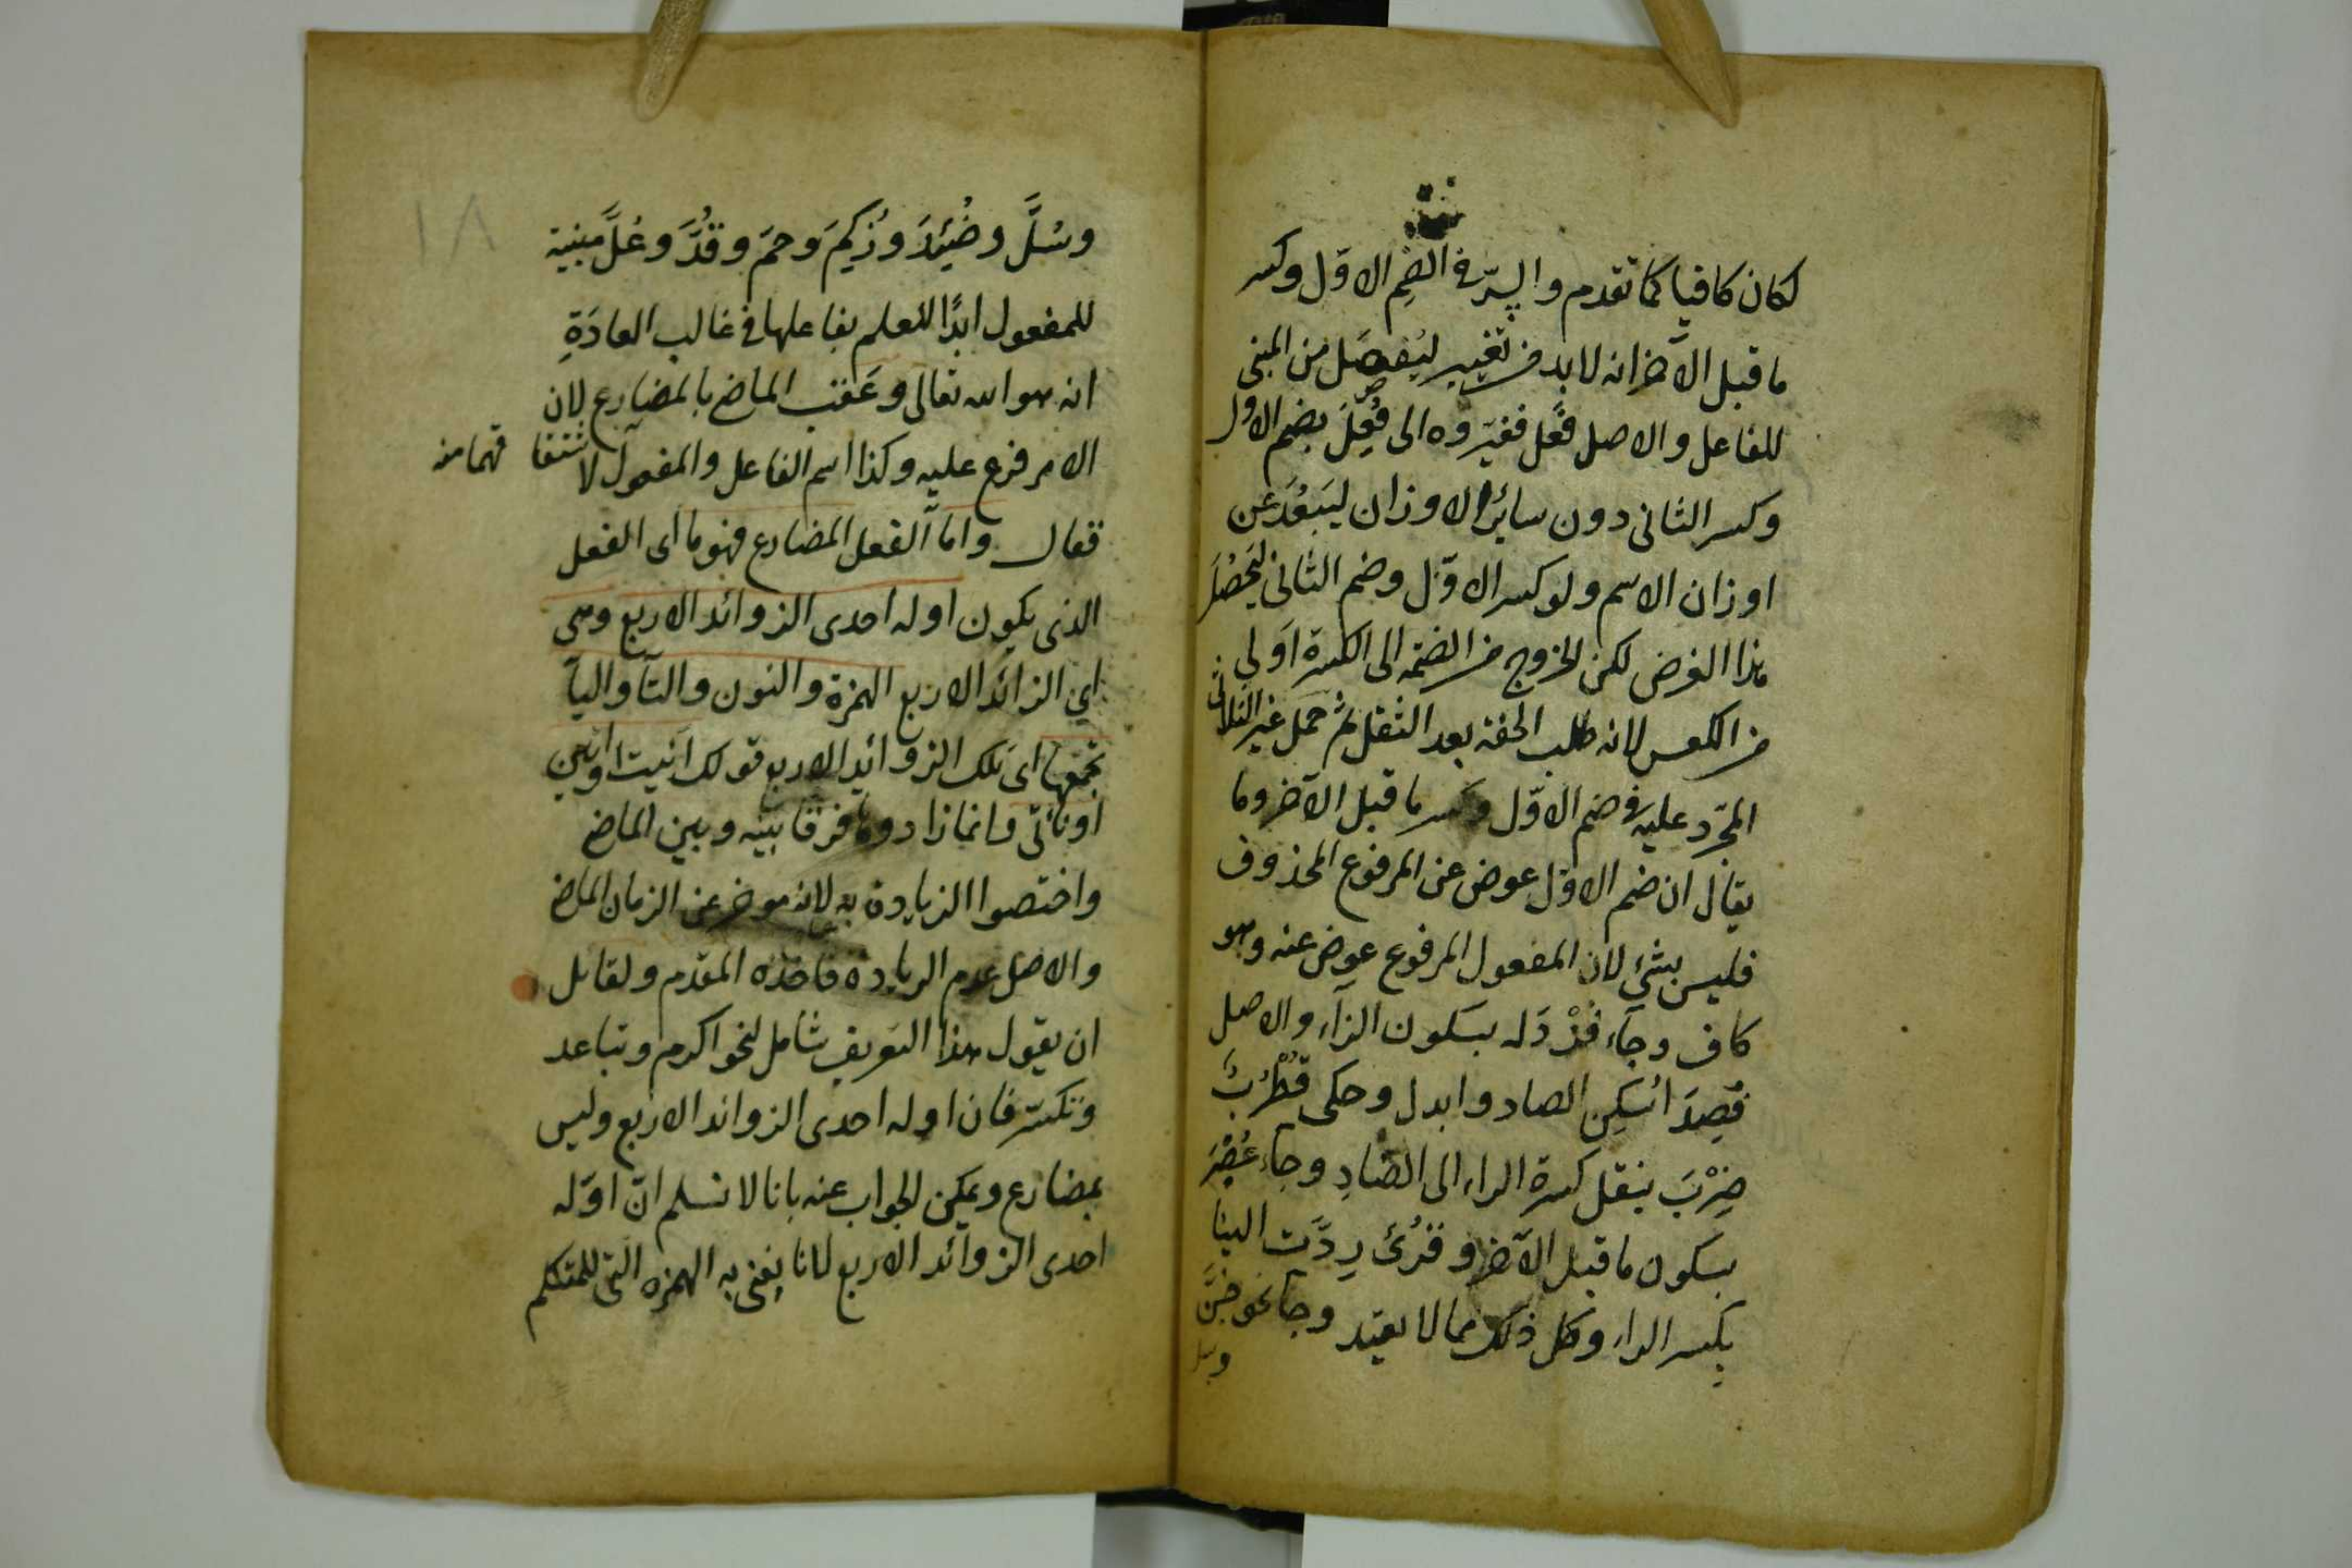 لكان كافيا كما تقدم والسِّرّ فى الضم الاوّل وكسر
ما قبل الآخر انه لا بد من تغيير ليُفصَل من المبنى
للفاعل والاصل فَعَل فغيّروه الى فُعِلَ بضم الاول
وكسر الثانى دون سائر الاوزان ليَبعُدَ عن
اوزان الاسم ولو كسر الاوّل وضم الثانى ليَحصُلَ
هذا الغرض لكن الخروج من الضمه الى الكسرة اَولى
من العكس لانه طلب الخفة بعد الثقل ثم حمل غير الثلاثى
المجرّد عليه فى ضم الاوّل وكسر ما قبل الآخر وما
يقال ان ضم الاوّل عوض عن المرفوع المحذوف
فليس بشئ لان المفعول المرفوع عوض عنه وهو
كاف وجآء فُزْدَ له بسكون الزآء والاصل
فُصِدَ اُسكِن الصاد وابدل وحكى قُطْرُبٌ
ضِرْبَ بنقل كسرة الراء الى الضادِ وجآء عُصْرَ
بسكون ما قبل الآخر وقُرئ رِدَّت الينا
بكسر الراء وكل ذلك مما لا يعتد وجآ نحو جُنَّ
وسل
١٨
وسُلَّ وضُئِدَ وزُكِمَ وحمَ وقُدَّ وغُلَّ مبنية
للمفعول ابدًا للعلم بفاعلها فى غالب العادَةِ
انه هو الله تعالى وعَقّب الماضى بالمضارع لان
الامر فرع عليه وكذا اسم الفاعل والمفعول لاشتقاقهما منه
فقال وامّا الفعل المضارع فهو ما اى الفعل
الذى يكون اوله احدى الزوائد الاربع وهى
اى الزائد الاربع الهمزة والنون والتآ واليآ
تجمعها اى تلك الزوائد الاربع قولك انيت او اتين
او ناتى فانما زادوها فرقا بينه وبين الماضى
واختصوا الزيادة به لانه مؤخر عن الزمان الماضى
والاصل عدم الزيادة فاخذه المقدم ولقائل
ان يقول هذا التعريف شامل لنحو اكرم وتباعد
وتكسّر فان اوله احدى الزوائد الاربع وليس
بمضارع ويمكن الجواب عنه بانا لا نسلم انّ اوّله
احدى الزوائد الاربع لانا نعنى به الهمزه التى للمتكلم